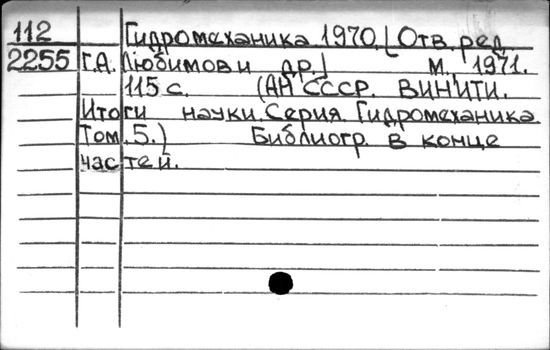 112 Гидромеханика 1970. [Отв. ред.
2255 Г.А. Любимов и др.] М., 1971.
115 с. (АН СССР. ВИНИТИ.
Итоги науки. Серия Гидромеханика.
Том. 5.) Библиогр. в конце
частей.